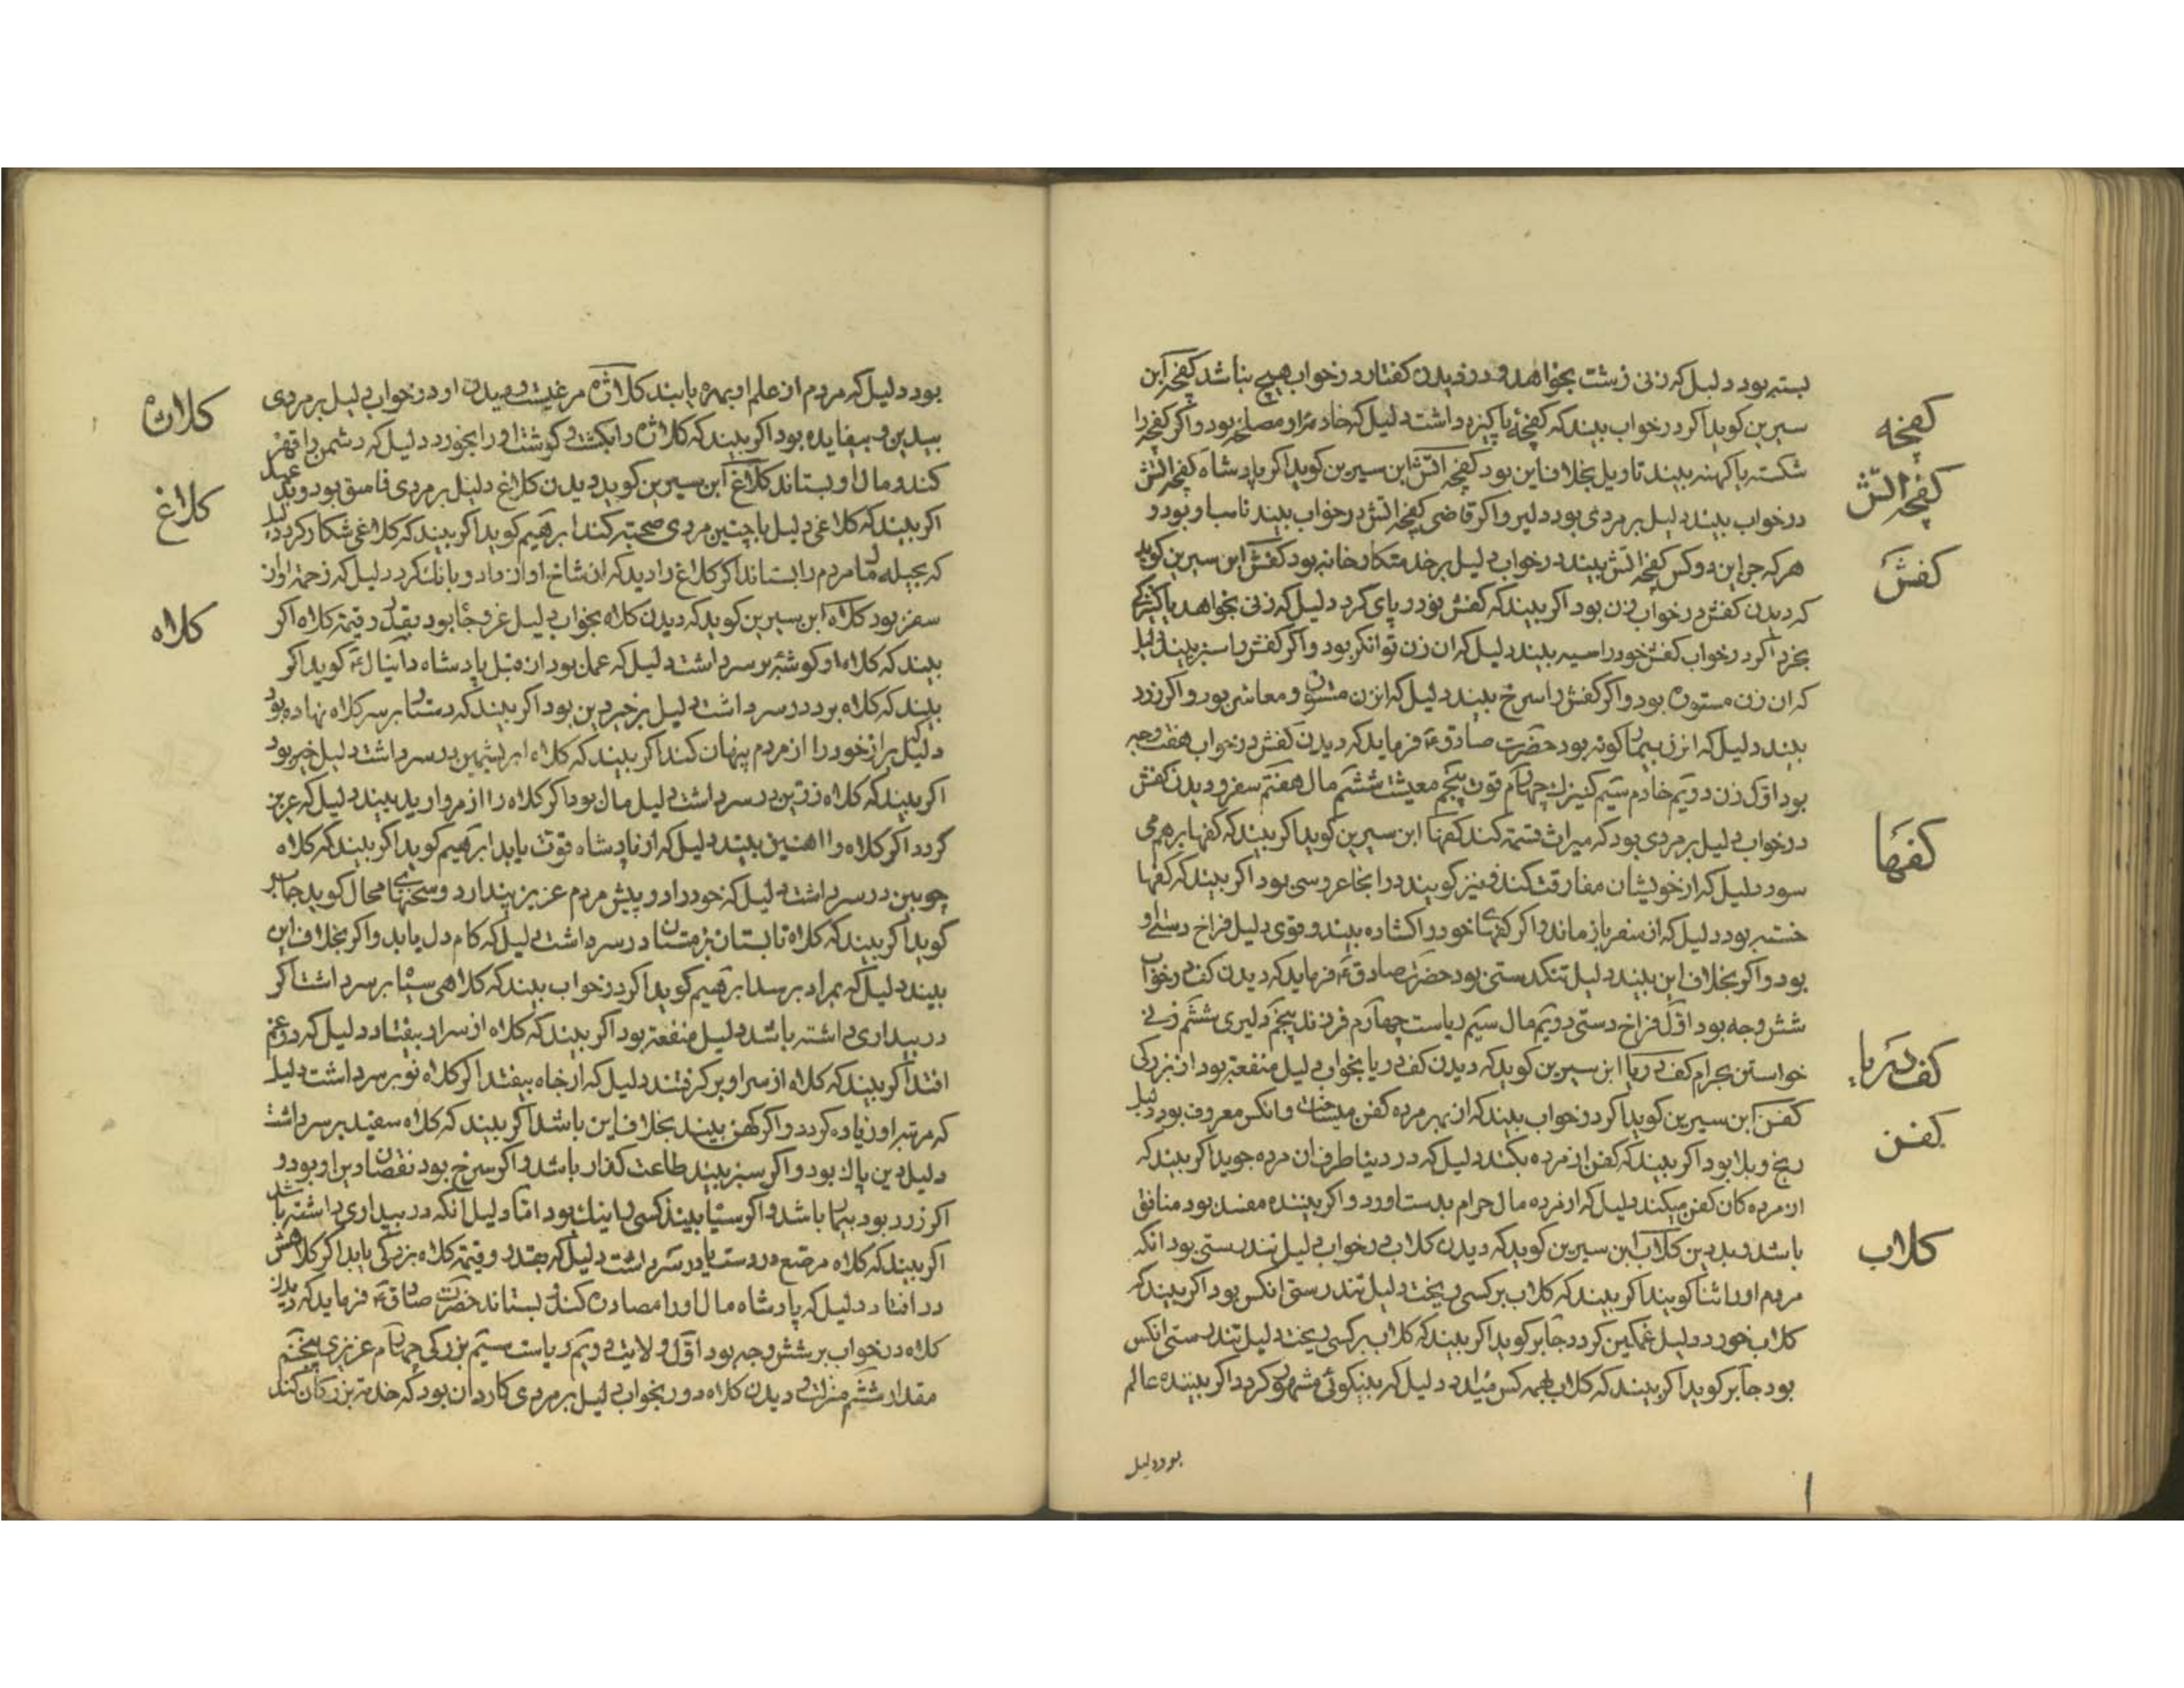 بسته بود دلیل که زنی زشت بخواهد و در دیدن کفتار در خواب هیچ نباشد کفچه ابن
کفچه
سیرین کوید اکر در خواب بیند که کفچهٔ پاکیزه داشت دلیل که خادم او مصلح بود و اکر کفچه را
شکسته یا کهنه بیند تاویل بخلاف این بود کفچه اتش ابن سیرین کوید اکر پادشاه کفچه اتش
کفچه اتش
در خواب بیند دلیل بر مردی بود دلیر و اکر قاضی کفچه اتش در خواب بیند ناسپاو بود و
هر که جز این دو کس کفچه اتش بیند در خواب دلیل بر خدمتکار خانه بود کفش ابن سیرین کوید
کفش
که دیدن کفش در خواب زن بود اکر بیند که کفش نو در پای کرد دلیل که زنی بخواهد یا کنیزکی
بخرد اکر در خواب کفش خود را سیه بیند دلیل که ان زن توانکر بود و اکر کفش را سبز بیند دلیل
که ان زن مستوره بود و اکر کفش را سرخ بیند دلیل که انزن و معاشر بود و اکر زرد
بیند دلیل که انزن بیمار کونه بود حضرت صادق ع فرماید که دیدن کفش در خواب هفت وجه
بود اول زن دویم خادم سیم کنیزك چهارم قوت پنجم معیشت ششم مال هفتم سفر و دیدن کفش
در خواب دلیل بر مردی بود که میراث قسمة کند کفها ابن سیرین کوید اکر بیند که کفها بر هم می
کفها
سود دلیل که از خویشان مفارقت کند و نیز کویند در انجا عروسی بود اکر بیند که کفها
خسته بود دلیل که از سفر باز ماند و اکر کفهای خود را کشاده بیند و قوی دلیل فراخ دستی او
بود و اکر بخلاف این بیند دلیل تنکدستی بود حضرت صادق ع فرماید که دیدن کف در خواب
شش وجه بود اول فراخ دستی دویم مال سیم ریاست چهارم فرزند پنجم دلیری ششم زنی
خواستن بحرام کف دریا ابن سیرین کوید که دیدن کف دریا بخواب دلیل منفعة بود از بزرکی
کف دریا
کفن ابن سیرین کوید اکر در خواب بیند که از بهر مرده کفن میساخت و انکس معروف بود دلیل
کفن
رنج و بلا بود اکر بیند که کفن از مرده بکند دلیل که در دنیا طرف ان مرده جوید اکر بیند که
از مرده کان کفن میکند دلیل که از مرده مال حرام بدست اورد و اکر بیننده مفسد بود منافق
باشد و بد دین کلاب ابن سیرین کوید که دیدن کلاب در خواب دلیل تندرستی بود انکه
کلاب
مردم او را ثنا کویند اکر بیند که کلاب بر کسی ریخت دلیل تندرستی انکس بود اکر بیند که
کلاب خورد دلیل غمکین کردد جابر کوید اکر بیند که کلاب بر کسی ریخت دلیل تندرستی انکس
بود جابر کوید اکر بیند که کلاب بهمه کس میداد دلیل که بنیکوئی مشهور کردد اکر بیننده عالم
بود دلیل
بود دلیل که مردم از علم او بهره یابند کلاژه مرغیست و دیدن او در خواب دلیل بر مردی
کلاژه
بیدین و بیفایده بود اکر بیند که کلاژه را بکشت و کوشت او را بخورد دلیل که دشمن را قهر
کند و مال او بستاند کلاغ ابن سیرین کوید دیدن کلاغ دلیل بر مردی فاسق بود و بد عهد
کلاغ
اکر بیند که کلاغی دلیل با چنین مردی صحبة کند ابرهیم کوید اکر بیند که کلاغی شکار کرد دلیل
که بحیله مال مردم را بستاند اکر کلاغ را دید که ان شاخ او از داد و بانك کرد دلیل که زحمة او از
سفر بود کلاه ابن سیرین کوید که دیدن کلاه بخواب دلیل عز و جاه بود بقدر و قیمة کلاه اکر
کلاه
بیند که کلاه او کوشه بر سر داشت دلیل که عمل بود از قبل پادشاه دانیال ع کوید اکر
بیند که کلاه برد در سر داشت دلیل بر خیر دین بود اکر بیند که دستار بر سر کلاه نهاده بود
دلیل راز خود را از مردم پنهان کند اکر بیند که کلاه ابریشمین در سر داشت دلیل خیر بود
اکر بیند که کلاه زرین در سر داشت دلیل مال بود اکر کلاه را از مروارید بیند دلیل که عزیز
کردد اکر کلاه را اهنین بیند دلیل که از پادشاه قوت یابد ابرهیم کوید اکر بیند که کلاه
چوبین در سر داشت دلیل که خود را در پیش مردم عزیز پندارد و سخنهای محال کوید جابر
کوید اکر بیند که کلاه تابستان بزمستان در سر داشت دلیل که کام دل یابد و اکر بخلاف این
بیند دلیل که بمراد برسد ابرهیم کوید اکر در خواب بیند که کلاهی سیاه بر سر داشت اکر
در بیداری داشته باشد دلیل منفعة بود اکر بیند که کلاه از سر او بیفتاد دلیل که در غم
افتد اکر بیند که کلاه از سر او بر کرفتند دلیل که از جاه بیفتد اکر کلاه نو بر سر داشت دلیل
که مرتبه او زیاده کردد و اکر کهن بیند بخلاف این باشد اکر بیند که کلاه سفید بر سر داشت
دلیل دین پاك بود و اکر سبز بیند طاعت کذار باشد و اکر سرخ بود نقصان دین او بود و
اکر زرد بود بیمار باشد و اکر سیاه بیند کسی را نیك بود اما دلیل انکه در بیداری داشته باشد
اکر بیند که کلاه مرصع در دست یا در سر داشت دلیل که بقدر و قیمة کلاه بزرکی یابد اکر کلاهش
در افتاد دلیل که پادشاه مال او را مصادره کند و بستاند حضرت صادق ع فرماید که دیدن
کلاه در خواب بر شش وجه بود اول ولایت دویم ریاست سیم بزرکی چهارم عزیزی پنجم
مقدار ششم منزلت و دیدن کلاه دوز بخواب دلیل بر مردی کاردان بود که خدمة بزرکان کند